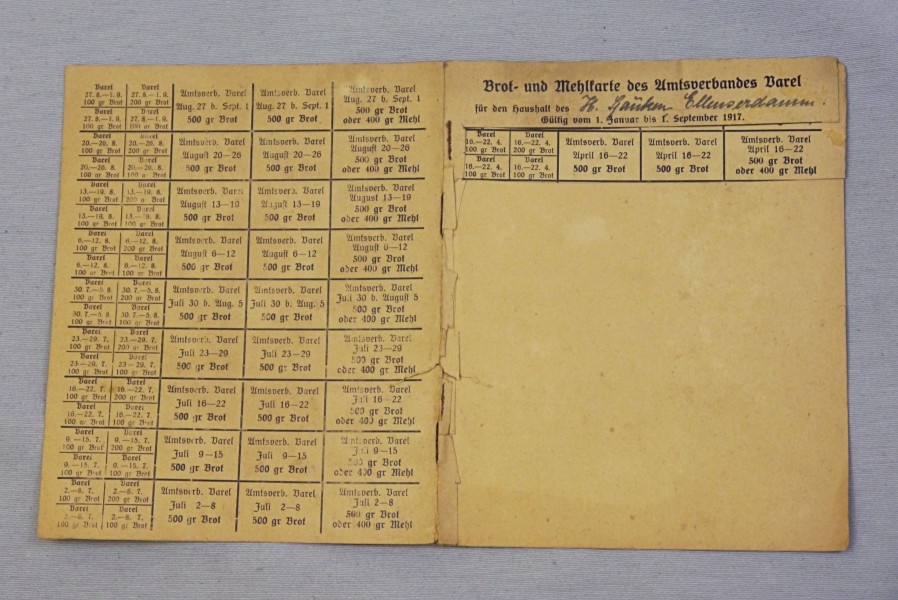 Varel Varel
27. 8.—1. 9. 27. 8.—1. 9.
100 gr Brot 200 gr Brot
Varel Varel
27. 8.—1. 9. 27. 8.—1. 9.
100 gr Brot 100 gr Brot
Amtsverb. Varel Amtsverb. Varel Amtsverb. Varel
Aug. 27 b. Sept. 1 Aug. 27 b. Sept. 1 Aug. 27 b. Sept. 1
500 gr Brot 500 gr Brot 500 gr Brot
oder 400 gr Mehl
Varel Varel
20.—26. 8. 20.—26. 8.
100 gr Brot 200 gr Brot
Varel Varel
20.—26. 8. 20.—26. 8.
100 gr Brot 100 gr Brot
Amtsverb. Varel Amtsverb. Varel Amtsverb. Varel
August 20—26 August 20—26 August 20—26
500 gr Brot 500 gr Brot 500 gr Brot
oder 400 gr Mehl
Varel Varel
13.—19. 8. 13.—19. 8.
100 gr Brot 200 gr Brot
Varel Varel
13.—19. 8. 13.—19. 8.
100 gr Brot 100 gr Brot
Amtsverb. Varel Amtsverb. Varel Amtsverb. Varel
August 13—19 August 13—19 August 13—19
500 gr Brot 500 gr Brot 500 gr Brot
oder 400 gr Mehl
Varel Varel
6.—12. 8. 6.—12. 8.
100 gr Brot 200 gr Brot
Varel Varel
6.—12. 8. 6.—12. 8.
100 gr Brot 100 gr Brot
Amtsverb. Varel Amtsverb. Varel Amtsverb. Varel
August 6—12 August 6—12 August 6—12
500 gr Brot 500 gr Brot 500 gr Brot
oder 400 gr Mehl
Varel Varel
30. 7.—5. 8. 30. 7.—5. 8.
100 gr Brot 200 gr Brot
Varel Varel
30. 7.—5. 8. 30. 7.—5. 8.
100 gr Brot 100 gr Brot
Amtsverb. Varel Amtsverb. Varel Amtsverb. Varel
Juli 30 b. Aug. 5 Juli 30 b. Aug. 5 Juli 30 b. August 5
500 gr Brot 500 gr Brot 500 gr Brot
oder 400 gr Mehl
Varel Varel
23.—29. 7. 23.—29. 7.
100 gr Brot 200 gr Brot
Varel Varel
23.—29. 7. 23.—29. 7.
100 gr Brot 100 gr Brot
Amtsverb. Varel Amtsverb. Varel Amtsverb. Varel
Juli 23—29 Juli 23—29 Juli 23—29
500 gr Brot 500 gr Brot 500 gr Brot
oder 400 gr Mehl
Varel Varel
16.—22. 7. 16.—22. 7.
100 gr Brot 200 gr Brot
Varel Varel
16.—22. 7. 16.—22. 7.
100 gr Brot 100 gr Brot
Amtsverb. Varel Amtsverb. Varel Amtsverb. Varel
Juli 16—22 Juli 16—22 Juli 16—22
500 gr Brot 500 gr Brot 500 gr Brot
oder 400 gr Mehl
Varel Varel
9.—15. 7. 9.—15. 7.
100 gr Brot 200 gr Brot
Varel Varel
9.—15. 7. 9.—15. 7.
100 gr Brot 100 gr Brot
Amtsverb. Varel Amtsverb. Varel Amtsverb. Varel
Juli 9—15 Juli 9—15 Juli 9—15
500 gr Brot 500 gr Brot 500 gr Brot
oder 400 gr Mehl
Varel Varel
2.—8. 7. 2.—8. 7.
100 gr Brot 200 gr Brot
Varel Varel
2.—8. 7. 2.—8. 7.
100 gr Brot 100 gr Brot
Amtsverb. Varel Amtsverb. Varel Amtsverb. Varel
Juli 2—8 Juli 2—8 Juli 2—8
500 gr Brot 500 gr Brot 500 gr Brot
oder 400 gr Mehl
Brot- und Mehlkarte des Amtsverbandes Varel
für den Haushalt des H. Ellenserdamm.
Gültig vom 1. Januar bis 1. September 1917.
Varel Varel
16.—22. 4. 16.—22. 4.
100 gr Brot 200 gr Brot
Varel Varel
16.—22. 4. 16.—22. 4.
100 gr Brot 100 gr Brot
Amtsverb. Varel Amtsverb. Varel Amtsverb. Varel
April 16—22 April 16—22 April 16—22
500 gr Brot 500 gr Brot 500 gr Brot
oder 400 gr Mehl